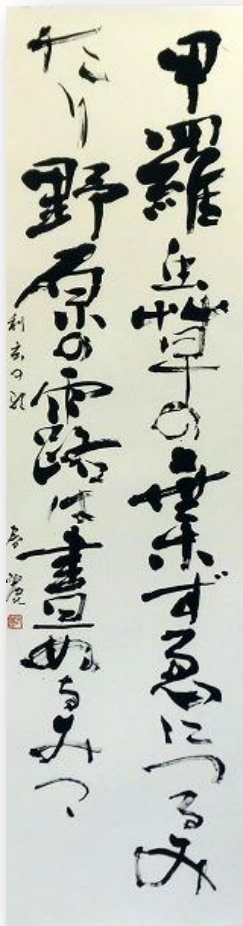 甲羅虫草の葉ずゑにつるみ
たり野原の露は晝ぬるみつゝ
利玄の歌